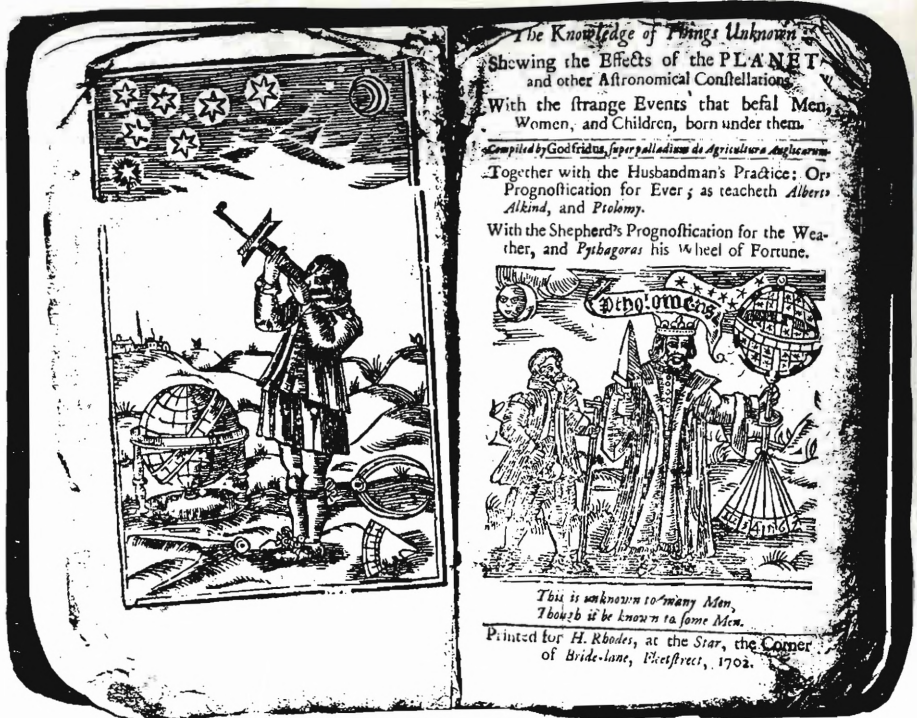 The Knowledge of Things Unknown
Shewing the Effects of the PLANET
and other Astronomical Constellations
With the strange Events that befal Men,
Women, and Children, born under them.
Compiled by Godfridus, super palladium de Agricultura Anglicarum
Together with the Husbandman's Practice: Or
Prognostication for Ever; as teacheth Albert
Alkind, and Ptolomy.
With the Shepherd's Prognostication for the Wea-
ther, and Pythagoras his Wheel of Fortune.
Ptholomeus
This is unknown to many Men,
Though it be known to some Men.
Printed for H. Rhodes, at the Star, the Corner
of Bride-lane, Fleetstreet, 1702.